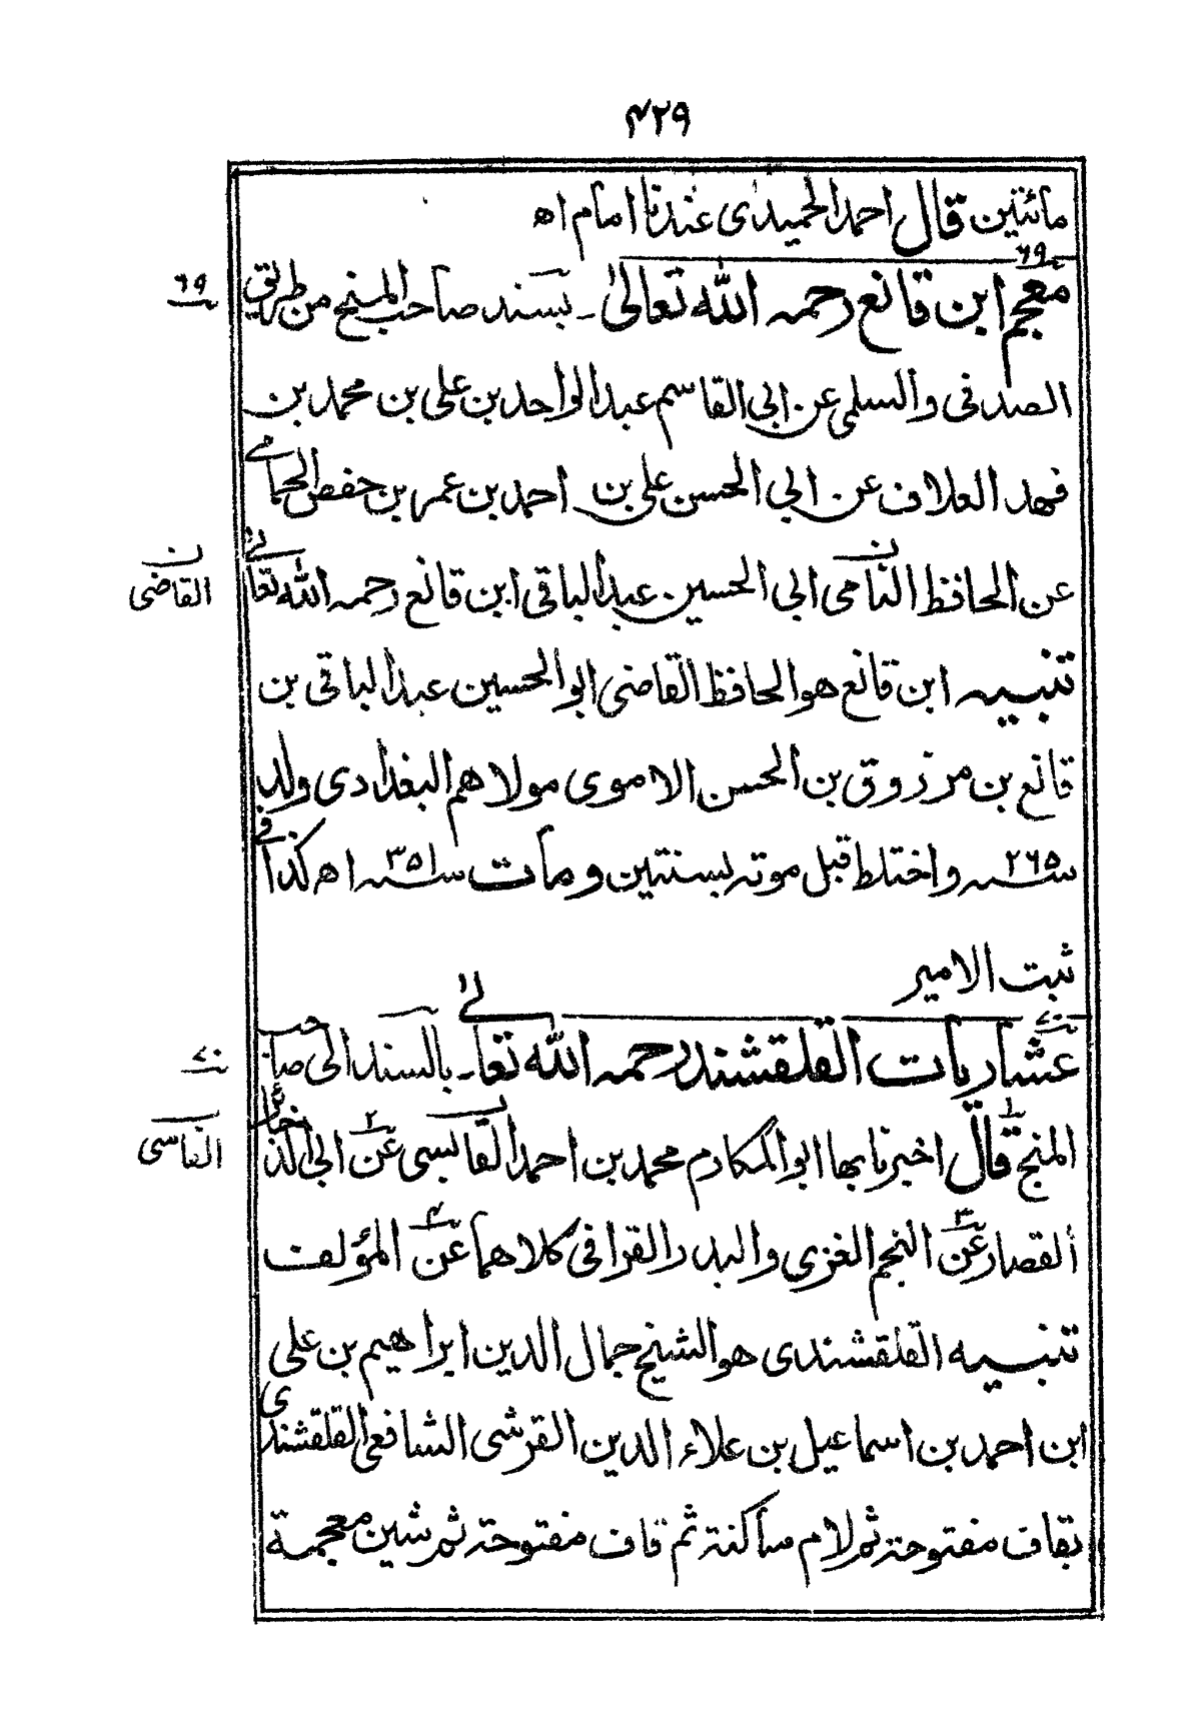 ۴۲۹
مائتين قال احمد الحميدى عندنا امام اه
۶۹
معجم ابن قانع رحمہ اللّٰہ تعالیٰ ۔ بسند صاحب المنح من طريق
۶۹
الصدفى والسلمى عن ابي القاسم عبد الواحد بن على بن محمد بن
فهد العلاف عن ابي الحسن على بن احمد بن عمر بن حفص الحمامے
عن الحافظ النامى ابي الحسين عبد الباقى ابن قانع رحمہ اللّٰہ تعالےٰ
ن القاضى
تنبيہ ابن قانع هو الحافظ القاضى ابو الحسين عبد الباقى بن
قانع بن مرزوق بن الحسن الاموى مولاهم البغدادى ولد
سنہ ۲۶۵ واختلط قبل موتہ بسنتين ومات سنہ ۳۵۱ اه كذا فے
ثبت الامير
۷۰
عشاريات القلقشندى رحمہ اللّٰہ تعالےٰ ۔ بالسند الى صاحب
۷۰
المنح قال اخبرنا بها ابو المكارم محمد بن احمد القابسى عن ابى الذخائر
الفاسى
ألقصار عن النجم الغزي والبدر القرافى كلاهما عن المؤلف
تنبيه القلقشندى هو الشيخ جمال الدين ابراهيم بن على
ابن احمد بن اسماعيل بن علاء الدين القرشى الشافعى القلقشندى
بقاف مفتوحة ثم لام ساكنة ثم قاف مفتوحة ثم شين معجمة